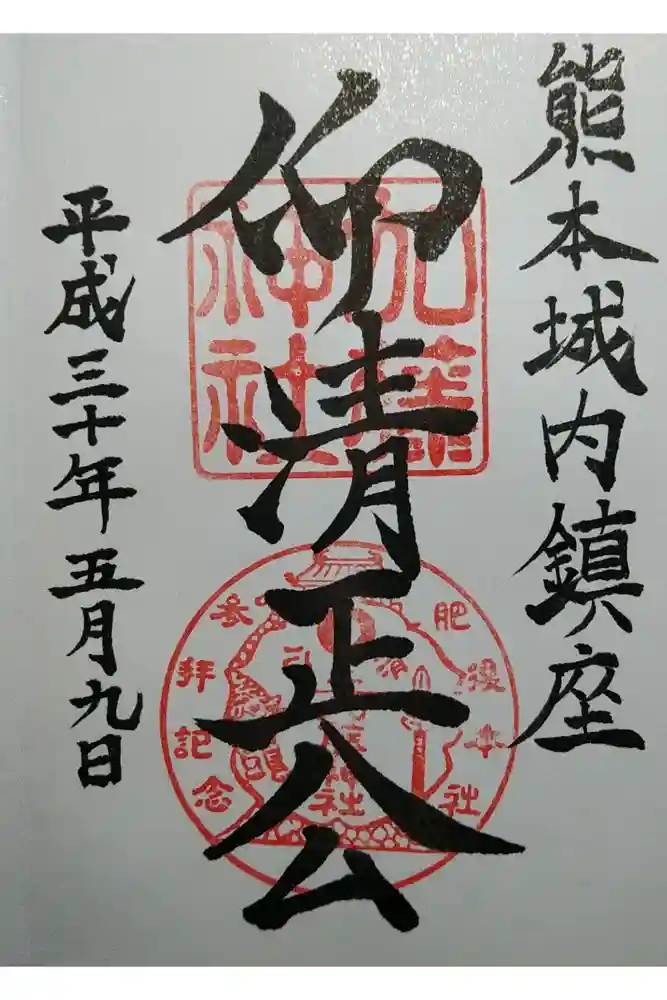 熊本城内鎮座
仰清正公
加藤
神社
肥後本社
加藤神社
参拝記念
平成三十年五月九日